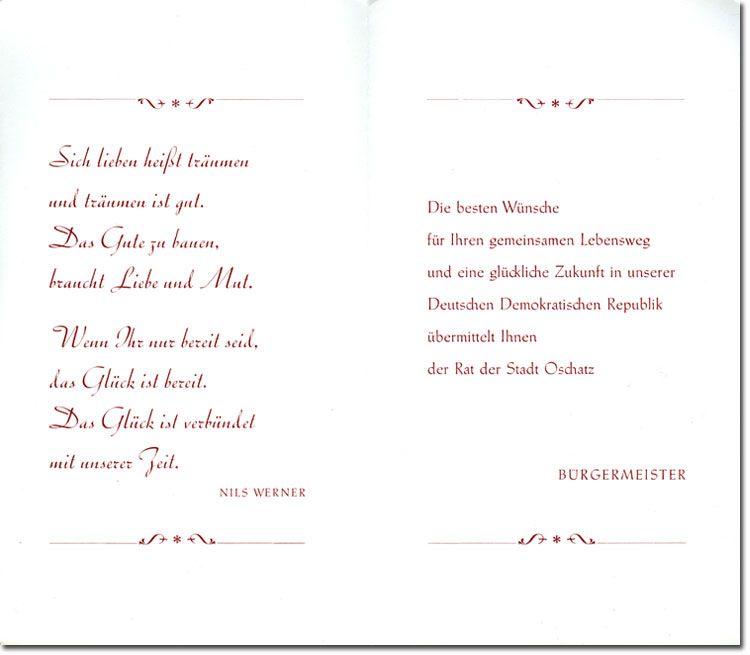 Sich lieben heißt träumen
und träumen ist gut.
Das Gute zu bauen,
braucht Liebe und Mut.
Wenn Ihr nur bereit seid,
das Glück ist bereit.
Das Glück ist verbündet
mit unserer Zeit.
NILS WERNER
Die besten Wünsche
für Ihren gemeinsamen Lebensweg
und eine glückliche Zukunft in unserer
Deutschen Demokratischen Republik
übermittelt Ihnen
der Rat der Stadt Oschatz
BÜRGERMEISTER